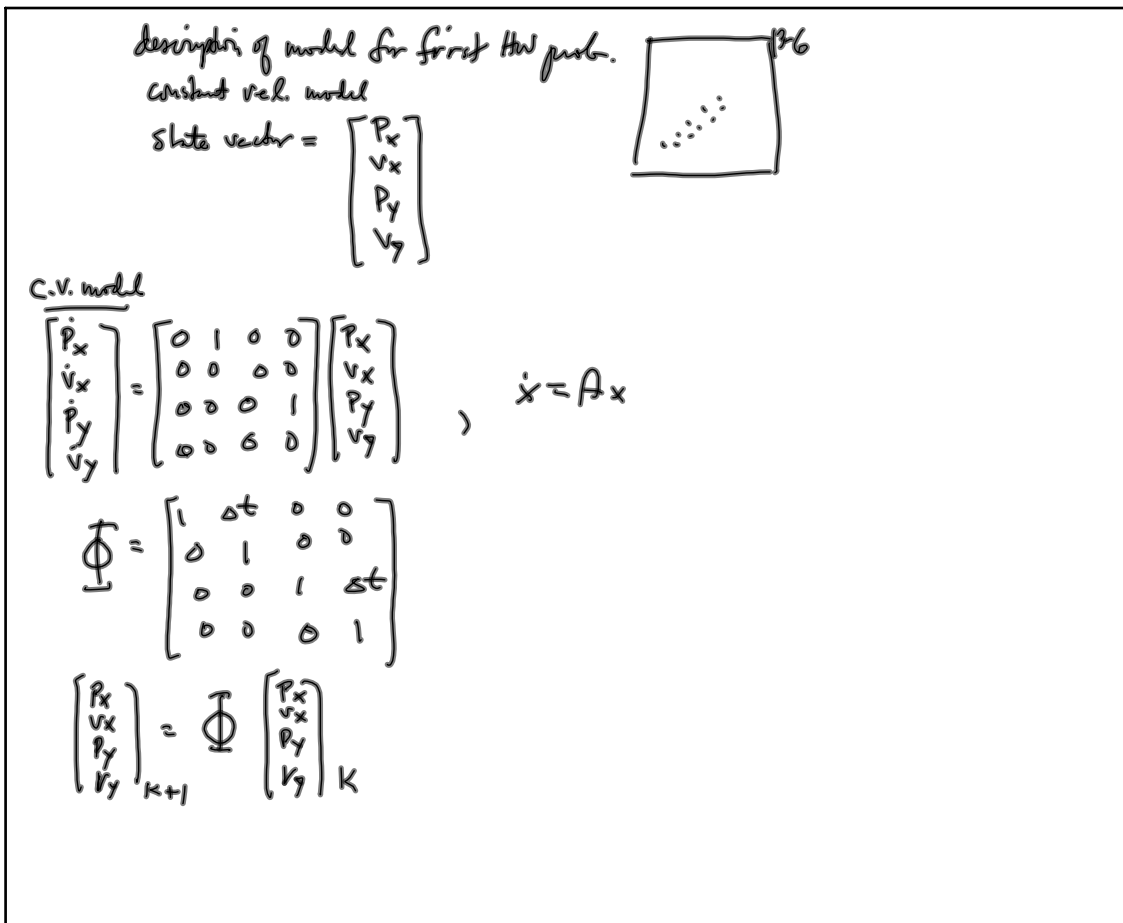 description of model for first HW prob.
13-6
constant vel. model
State vector = [Px
vx
Py
vy]
C.V. model
[Ṗx
v̇x
Ṗy
v̇y] = [0 1 0 0
0 0 0 0
0 0 0 1
0 0 0 0] [Px
vx
Py
vy] , ẋ = Ax
Φ = [1 Δt 0 0
0 1 0 0
0 0 1 Δt
0 0 0 1]
[Px
vx
Py
vy]k+1 = Φ [Px
vx
Py
vy]k